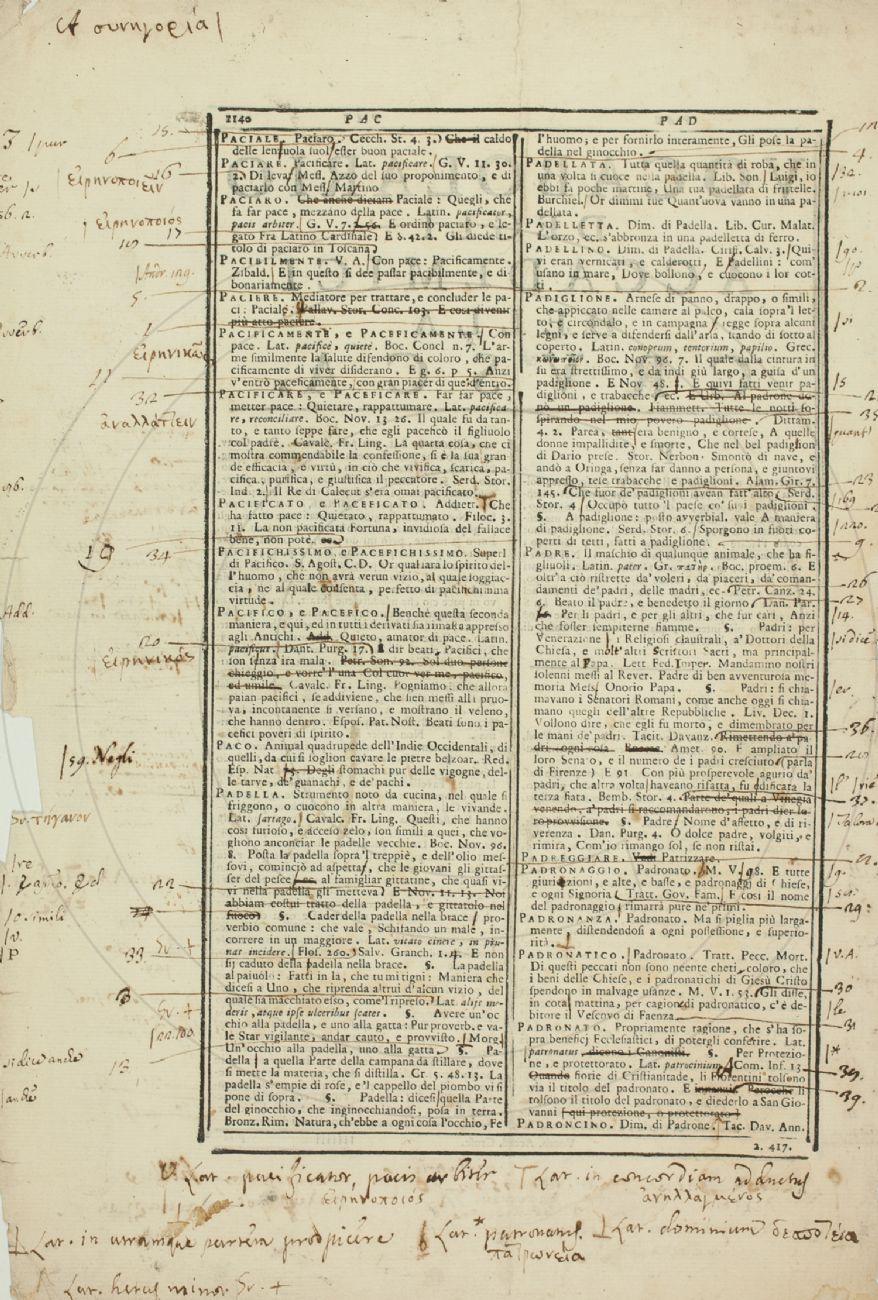 A συνηγορία
2140 PAC PAD
PACIALE. Paciaro. Cecch. St. 4. 3. Che il caldo
delle lenzuola suol esser buon paciale.
PACIARE. Pacificare. Lat. pacificare. G. V. 11. 30.
2. Di leva Mess. Azzo del suo proponimento, e di
paciarlo con Mess. Mastino
PACIARO. Che anche diciam Paciale: Quegli, che
fa far pace, mezzano della pace. Latin. pacificator,
pacis arbiter. G. V. 7. 56. E ordinò paciaro, e le-
gato Fra Latino Cardinale E 8. 42. 2. Gli diede ti-
tolo di paciaro in Toscana
PACIBILMENTE. V. A. Con pace: Pacificamente.
Zibald. E in questo si dee passar pacibilmente, e di
bonariamente.
PACIERE. Mediatore per trattare, e concluder le pa-
ci: Paciale. Pallav. Stor. Conc. 103. E così divenir
più atto paciere.
PACIFICAMENTE, e PACEFICAMENTE. Con
pace. Lat. pacificè, quietè. Boc. Concl. n. 7. L'ar-
me similmente la salute difendono di coloro, che pa-
cificamente di viver disiderano. E g. 6. p 5. Anzi
v'entrò paceficamente, con gran piacer di que' d'entro.
PACIFICARE, e PACEFICARE. Far far pace,
metter pace: Quietare, rappattumare. Lat. pacifica
re, reconciliare. Boc. Nov. 13 26. Il quale fu da tan-
to, e tanto seppe fare, che egli pacificò il figliuolo
col padre. Cavalc. Fr. Ling. La quarta cosa, che ci
mostra commendabile la confessione, si è la sua gran-
de efficacia, e virtù, in ciò che vivifica, scarica, pa-
cifica, purifica, e giustifica il peccatore. Serd. Stor.
Ind. 2. Il Re di Calecut s'era omai pacificato.
PACIFICATO, e PACEFICATO. Addiett. Che
ha fatto pace: Quietato, rappattumato. Filoc. 3.
11. La non pacificata Fortuna, invidiosa del fallace
bene, non potè.
PACIFICHISSIMO, e PACEFICHISSIMO. Superl
di Pacifico. S. Agost. C. D. Or qual sarà lo spirito del-
l'huomo, che non avrà verun vizio, al quale soggiac-
cia, nè al quale consenta, perfetto di pacifichissima
virtude.
PACIFICO, e PACEFICO. Benchè questa seconda
maniera, e qui, ed in tutti i derivati sia rimasa appresso
agli Antichi. Add. Quieto, amator di pace. Latin.
pacificus. Dant. Purg. 17. A dir beati Pacifici, che
son senza ira mala. Petr. Son. 92. Sol due persone
chieggio, e vorre' l'una Col cuor ver me, pacifico,
ed umile. Cavalc. Fr. Ling. Pogniamo: che allora
paian pacifici, se addiviene, che sien messi alla pruo-
va, incontanente si versano, e mostrano il veleno,
che hanno dentro. Espos. Pat. Nost. Beati sono i pa-
cefici poveri di spirito.
PACO. Animal quadrupede dell'Indie Occidentali, di
quelli, da cui si soglion cavare le pietre belzoar. Red.
Esp. Nat 13. Degli stomachi pur delle vigogne, del-
le tarve, de' guanachi, e de' pachi.
PADELLA. Strumento noto da cucina, nel quale si
friggono, o cuocono in altra maniera, le vivande.
Lat. sartago. Cavalc. Fr. Ling. Questi, che hanno
così furioso, e acceso zelo, son simili a quei, che vo-
gliono anconciar le padelle vecchie. Boc. Nov. 96.
8. Posta la padella sopra 'l treppiè, e dell'olio mes-
sovi, cominciò ad aspettar, che le giovani gli gittas-
ser del pesce, al famigliar gittatine, che quasi vi-
vi nella padella gli metteva E Nov. 11. 13. Noi
abbiam costui tratto della padella, e gittatolo nel
fuoco §. Cader della padella nella brace, pro-
verbio comune: che vale, Schifando un male, in-
correre in un maggiore. Lat. vitato cinere, in pru-
nas incidere. Flos. 260. Salv. Granch. 1. 4. E non
sij caduto della padella nella brace. §. La padella
al paiuolo: Fatti in là, che tu mi tigni: Maniera che
dicesi a Uno, che riprenda altrui d'alcun vizio, del
quale sia macchiato esso, come 'l ripreso. Lat. alijs me-
deris, atque ipse ulceribus scates. §. Avere un'oc-
chio alla padella, e uno alla gatta: Pur proverb. e va-
le Star vigilante, andar cauto, e provvisto. Morg.
Un'occhio alla padella, uno alla gatta. §. Pa-
della a quella Parte della campana da stillare, dove
si mette la materia, che si distilla. Cr. 5. 48. 13. La
padella s'empie di rose, e 'l cappello del piombo vi si
pone di sopra. §. Padella: dicesi quella Parte
del ginocchio, che inginocchiandosi, posa in terra.
Bronz. Rim. Natura, ch'ebbe a ogni cosa l'occhio, Fe
l'huomo; e per fornirlo interamente, Gli pose la pa-
della nel ginocchio.
PADELLATA. Tutta quella quantità di roba, che in
una volta si cuoce nella padella. Lib. Son. Luigi, io
ebbi fa poche mattine, Una tua padellata di frittelle.
Burchiel. Or dimmi tue Quant'uova vanno in una pa-
dellata.
PADELLETTA. Dim. di Padella. Lib. Cur. Malat.
L'orzo, ec. s'abbronza in una padelletta di ferro.
PADELLINO. Dim. di Padella. Ciriff. Calv. 3. Qui-
vi eran vernicati, e calderotti, E Padellini: com'
usano in mare, Dove bollono, e cuocono i lor cot-
ti.
PADIGLIONE. Arnese di panno, drappo, o simili,
che appiccato nelle camere al palco, cala sopra 'l let-
to, e circondalo, e in campagna si regge sopra alcuni
legni, e serve a difendersi dall'aria, stando di sotto al
coperto. Latin. conopeum, tentorium, papilio. Grec.
κωνωπεῖον. Boc. Nov. 96. 7. Il quale dalla cintura in
su era strettissimo, e da indi giù largo, a guisa d'un
padiglione. E Nov 48. 8. E quivi fatti venir pa-
diglioni, e trabacche, ec. E Urb. Al padrone uc-
nò un padiglione. Fiammett. Tutte le notti so-
spirando nel mio povero padiglione. Dittam.
4. 2. Parea, tant'era benigno, e cortese, A quelle
donne impallidite, e smorte, Che nel bel padiglion
di Dario prese. Stor. Nerbon. Smontò di nave, e
andò a Oringa, senza far danno a persona, e giuntovi
appresso, tese trabacche e padiglioni. Alam. Gir. 7.
145. Che fuor de' padiglioni avean fatt'alto. Serd.
Stor. 4 Occupò tutto 'l paese co' suoi padiglioni.
§. A padiglione: posto avverbial. vale A maniera
di padiglione. Serd. Stor. 6. Sporgono in fuori co-
perti di tetti, fatti a padiglione.
PADRE. Il maschio di qualunque animale, che ha fi-
gliuoli. Latin. pater. Gr. πατήρ. Boc. proem. 6. E
oltr'a ciò ristrette da' voleri, da' piaceri, da' coman-
damenti de' padri, delle madri, ec. Petr. Canz. 24.
6. Beato il padre, e benedetto il giorno. Dan. Par.
Per li padri, e per gli altri, che fur cari, Anzi
che fosser sempiterne fiamme. §. Padri: per
Venerazione, i Religiosi claustrali, a' Dottori della
Chiesa, e molt'altri Scrittori Sacri, ma principal-
mente al Papa. Lett. Fed. Imper. Mandammo nostri
solenni messi al Rever. Padre di ben avventurosa me-
moria Mess. Onorio Papa. §. Padri: si chia-
mavano i Senatori Romani, come anche oggi si chia-
mano quegli dell'altre Repubbliche. Liv. Dec. 1.
Vollono dire, che egli fu morto, e dimembrato per
le mani de' padri. Tacit. Davanz. Rimettendo a' pa-
dri ogni cosa. Amet. 90. E ampliato il
loro Senato, e il numero de i padri cresciuto (parla
di Firenze) E 91 Con più prosperevole agurio da'
padri, che altra volta haveano risatta, fu edificata la
terza fiata. Bemb. Stor. 4. Parte de' quali a Vinegia
venendo, a' padri si raccomandarono, i padri dier lo-
ro provvisione. §. Padre: Nome d'affetto, e di ri-
verenza. Dan. Purg. 4. O dolce padre, volgiti, e
rimira, Com'io rimango sol, se non ristai.
PADREGGIARE. Vedi Patrizzare.
PADRONAGGIO. Padronato. M. V. 98. E tutte
giuridizioni, e alte, e basse, e padronaggi di Chiese,
e ogni Signoria. Tratt. Gov. Fam. E così il nome
del padronaggio rimarrà pure ne' primi.
PADRONANZA. Padronato. Ma si piglia più larga-
mente, distendendosi a ogni possessione, e superio-
rità.
PADRONATICO. Padronato. Tratt. Pecc. Mort.
Di questi peccati non sono neente cheti coloro, che
i beni delle Chiese, e i padronatichi di Giesù Cristo
spendono in malvage usanze. M. V. 1. 53. Gli disse,
in cotal mattina, per cagione di padronatico, c'è de-
bitore il Vescovo di Faenza.
PADRONATO. Propriamente ragione, che s'ha so-
pra beneficj Ecclesiastici, di potergli conferire. Lat.
patronatus dicono i Canonisti. §. Per Protezio-
ne, e protettorato. Lat. patrocinium. Com. Inf. 13
Quando fiorie di Cristianitade, li Fiorentini tolsono
via il titolo del padronato. E innanzi Perocchè li
tolsono il titolo del padronato, e diederlo a San Gio-
vanni (qui protezione, o protettorato)
PADRONCINO. Dim. di Padrone. Tac. Dav. Ann.
2. 417.
εἰρηνοποιεῖν
εἰρηνοποιός
εἰρηνικῶς
ἀναλλάττειν
εἰρηνικός
sg. Negli
τήγανον
Lat. pacificator, pacis arbiter
εἰρηνοποιός
Lat. in concordiam adductus
ἀνηλλαγμένος
Lat. in utramque partem prospicere
Lat. patronatus
πατρωνεία
Lat. dominium δεσποτεία
Lat. herus minor